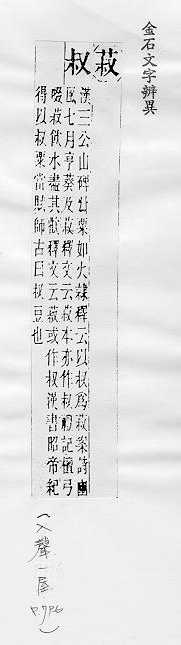 金石文字辨異
菽 叔
漢三公山碑叔粟如火隸釋云以叔為菽案詩豳
風七月亨葵及菽釋文云菽本亦作叔禮記檀弓
啜菽飲水盡其歡釋文云菽或作叔漢書昭帝紀
得以叔粟當賦師古曰叔豆也
(入聲一屋 P.796)